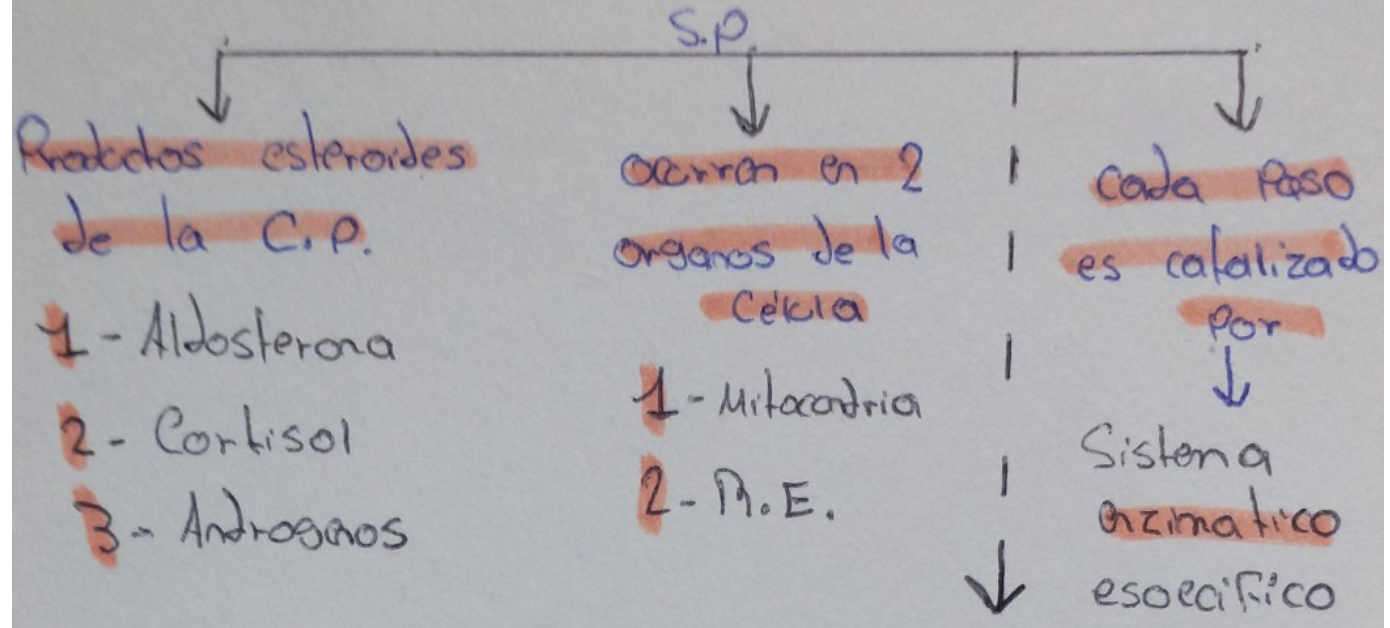 S.P.
Productos esteroides
de la C.P.
1- Aldosterona
2- Cortisol
3- Androgenos
ocurren en 2
organos de la
Célula
1- Mitocondria
2- R.E.
cada Paso
es catalizado
Por
Sistema
enzimatico
especifico